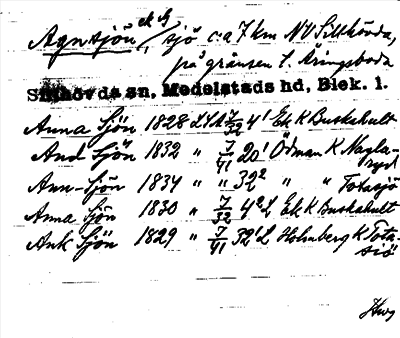 Agnsjön, sjö c:a 7 km NV Sillhövda,
på gränsen t. Åryd
Sillhövda sn, Medelstads hd, Blek. l.
Anna Sjön 1828 LSA 7/32 4¹ Ek K Buskahult
And Sjön 1832 " 7/41 20¹ Ödman K Nagla-
ryd
Ann-Sjön 1834 " " 32² " " Totasjö
Anna Sjön 1830 " 7/32 4² L Ek K Buskahult
Ank Sjön 1829 " 7/41 32¹ L Holmberg K Tota-
sjö